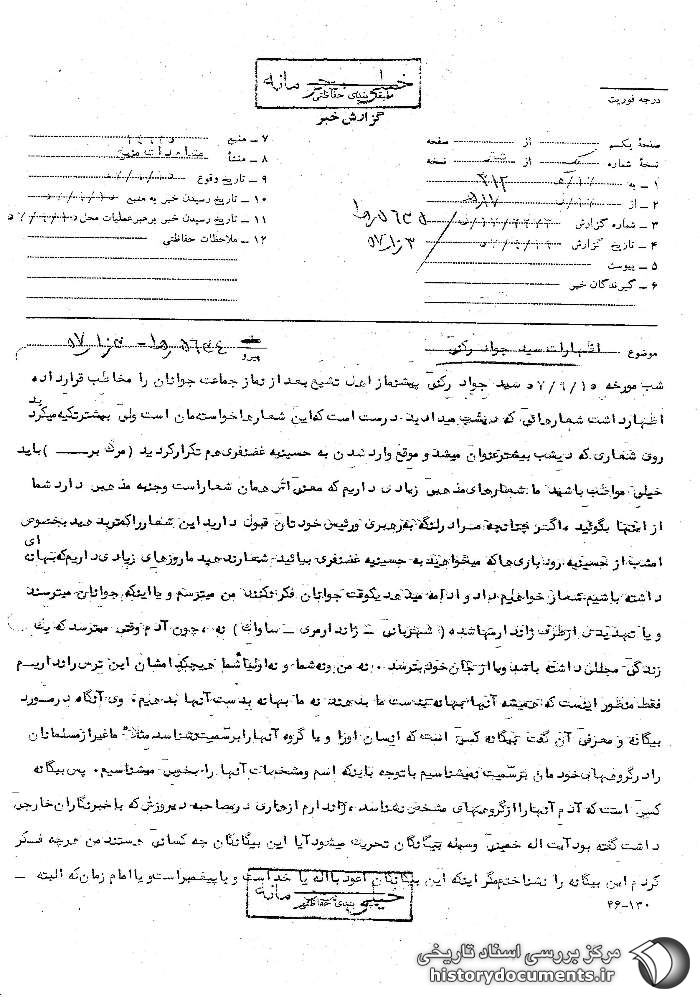 خیلی محرمانه
طبقه بندی حفاظتی
گزارش خبر
درجه فوریت
صفحهٔ یکم از صفحه
نسخهٔ شماره یک از نسخه
۱ – به ۳۱۲
۲ – از ۵ه۱۷
۳ – شماره گزارش
۴ – تاریخ گزارش
۵ – پیوست
۶ – گیرندگان خبر
۷ – منبع
۸ – منشأ مشاهدات منبع
۹ – تاریخ وقوع
۱۰ – تاریخ رسیدن خبر به منبع
۱۱ – تاریخ رسیدن خبر برهبر عملیات محل
۱۲ – ملاحظات حفاظتی
موضوع اظهارات سید جواد رکنی
پیرو
شب مورخه ۵۷/۹/۱۵ سید جواد رکنی پیشنماز اهل تشیع بعد از نماز جماعت جوانان را مخاطب قرار داده
اظهار داشت شعارهائی که دیشب میدادید درست است که این شعارها خواسته من است ولی بیشتر تکیه میکردید
روی شعاری که دیشب بیشتر عنوان میشد و موقع وارد شدن به حسینیه غضنفری هم تکرار کردید (مرگ بر ــــ) باید
خیلی مواظب باشید ما شعارهای مذهبی زیادی داریم که معنی اش همان شعار است و جنبه مذهبی دارد شما
از آنها بگوئید، اگر چنانچه مرا در رهبری و رئیس خودتان قبول دارید این شعار را کمتر بدهید بخصوص
امشب از حسینیه رودباری ها که میخواهید به حسینیه غضنفری بیائید شعار ندهید ما روزهای زیادی داریم که بهانه ای
داشته باشیم شعار خواهیم داد و ادامه میدهد یکوقت جوانان فکر نکنند من میترسم و یا اینکه جوانان میترسند
و یا تهدیدی از طرف ژاندارمها شده (شهربانی – ژاندارمری – ساواک) نه، چون آدم وقتی میترسد که یک
زندگی مجللی داشته باشد و یا از جان خود بترسد. نه من و نه شما و نه اولیا شما هیچکدامشان این ترس را نداریم
فقط منظور اینست که همیشه آنها بهانه بدست ما بدهند نه ما بهانه بدست آنها بدهیم. وی آنگاه در مورد
بیگانه و معرفی آن گفت بیگانه کسی است که انسان او را و یا گروه آنها را برسمیت نشناسد مثلاً ما غیر از مسلمانان
را در گروههای خودمان برسمیت نمیشناسیم با توجه باینکه اسم و مشخصات آنها را بخوبی میشناسیم. پس بیگانه
کسی است که آدم آنها را از گروههای مشخص نشناسد، ژاندارم ازهاری در مصاحبه دیروزش که با خبرنگاران خارجی
داشت گفته بود آیت اله خمینی وسیله بیگانگان تحریک میشود آیا این بیگانگان چه کسانی هستند من هر چه فکر
کردم این بیگانه را نشناختم مگر اینکه این بیگانگان اعوذ باله یا خداست و یا پیغمبر است و یا امام زمان که البته –
۴۶-۱۳۰
خیلی محرمانه
طبقه بندی حفاظتی
مرکز بررسی اسناد تاریخی
historydocuments.ir